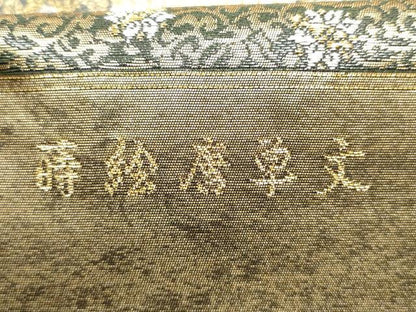 蒔絵唐草文